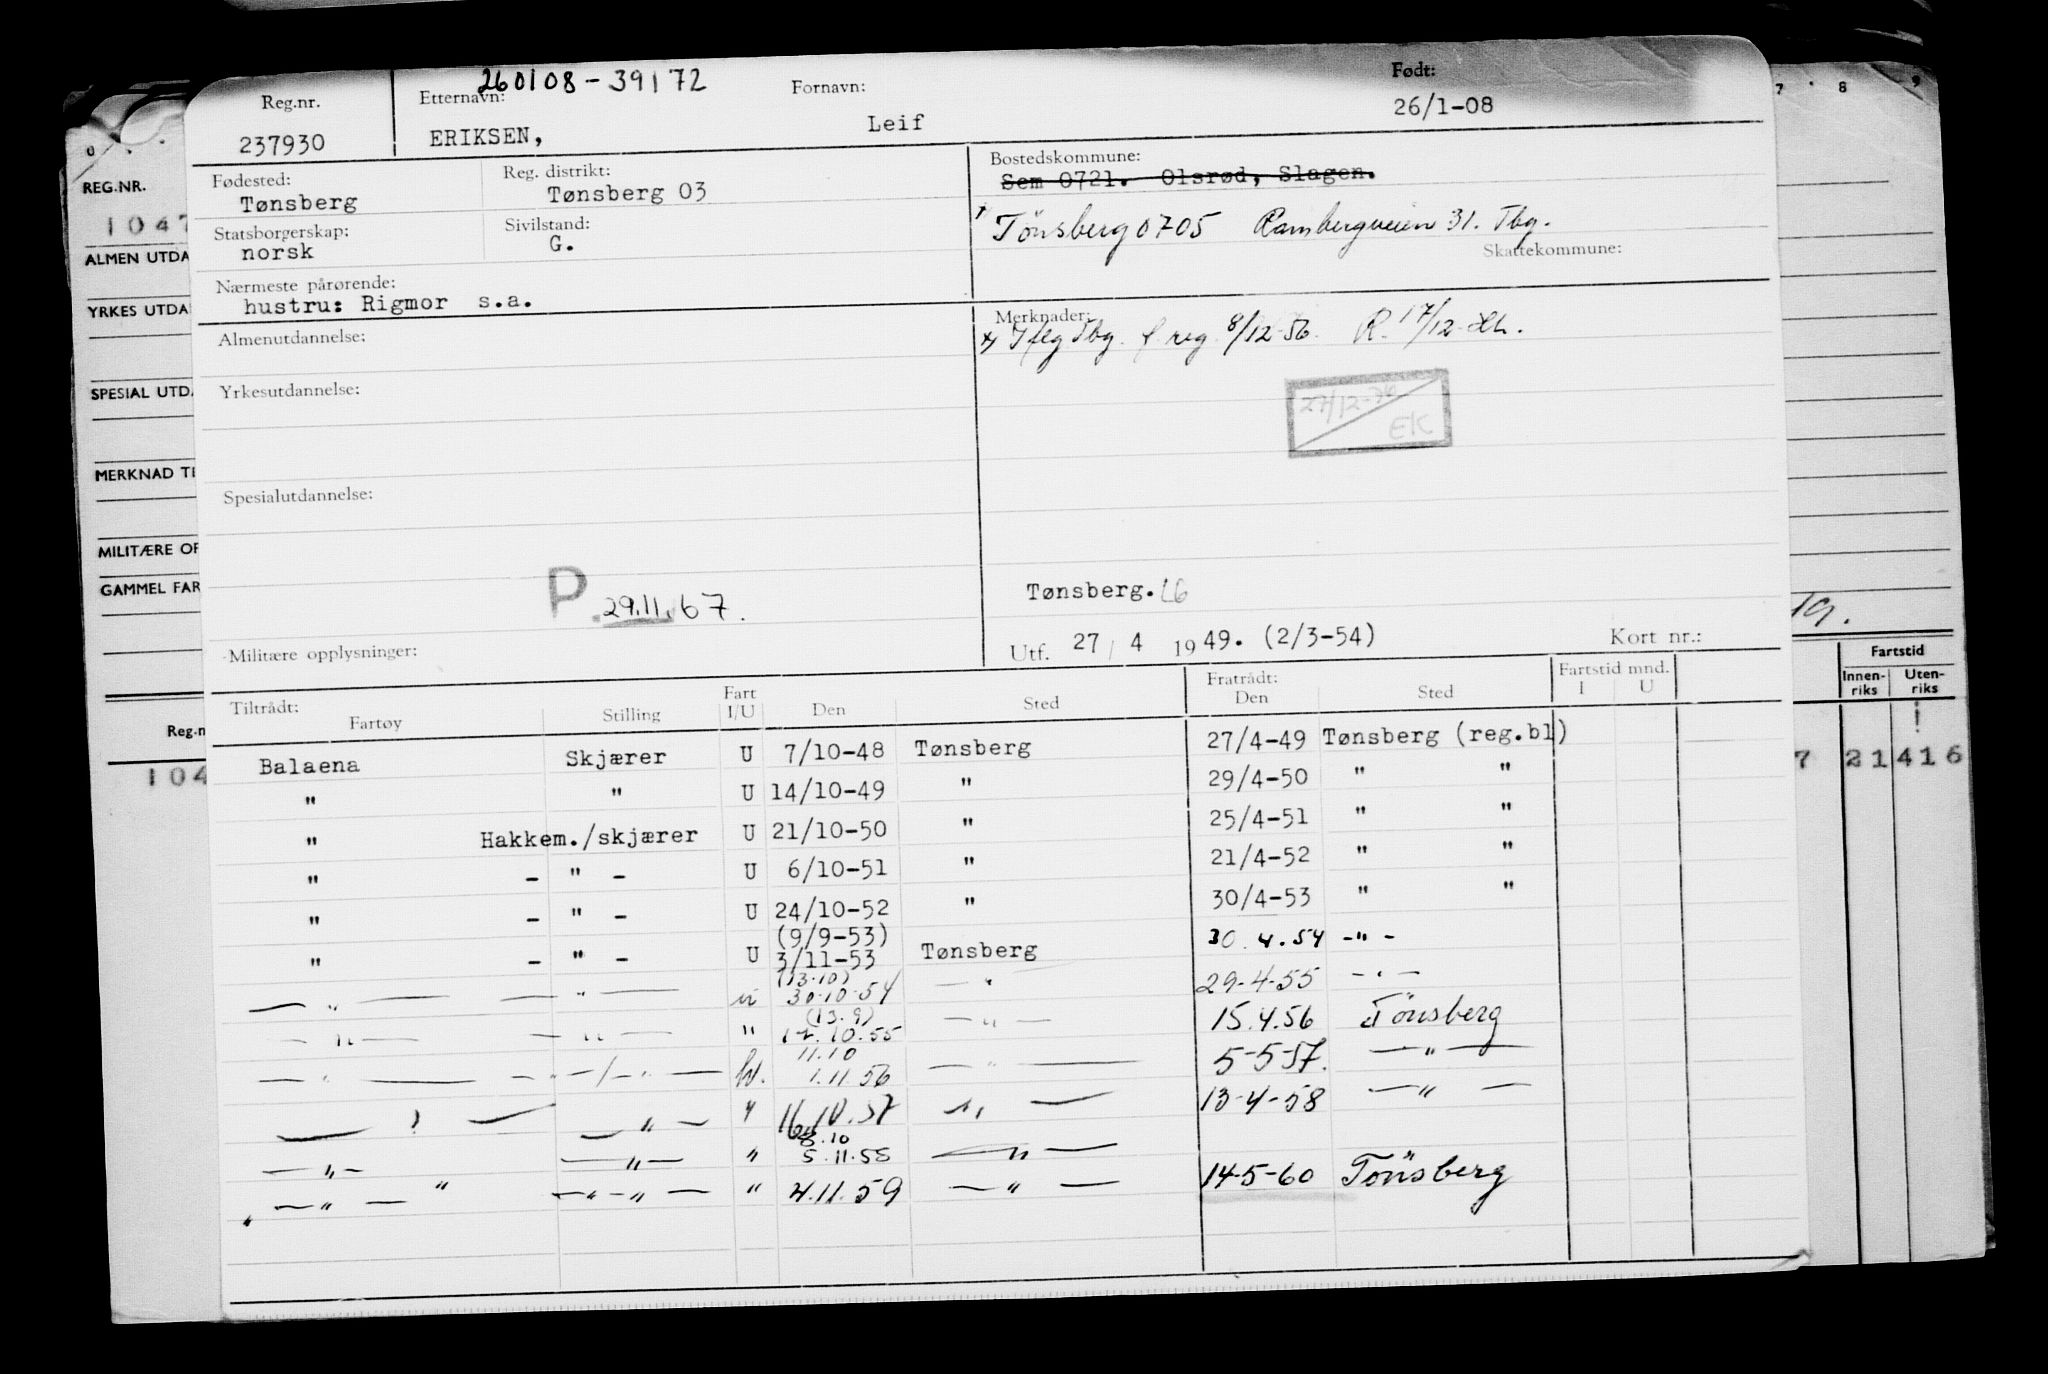 260108-39172
Reg.nr. Etternavn: Fornavn: Født:
237930 ERIKSEN, Leif 26/1-08
Fødested: Reg. distrikt: Bostedskommune:
Tønsberg Tønsberg 03 Sem 0721. Olsrød, Slagen.
Statsborgerskap: Sivilstand:
norsk G. Tönsberg 0705 Rambergveien 31. Tbg.
Skattekommune:
Nærmeste pårørende:
hustru: Rigmor s.a.
Merknader:
x) Iflg Tbg. f. reg. 8/12-56. R. 17/12
Almenutdannelse:
Yrkesutdannelse:
27/12-
EK
Spesialutdannelse:
P. 29.11.67.
Tønsberg. L6
Utf. 27/4 1949. (2/3-54) Kort nr.:
Militære opplysninger:
Tiltrådt: Fratrådt: Fartstid mnd.
Fartøy Stilling Fart I/U Den Sted Den Sted I U
Balaena Skjærer U 7/10-48 Tønsberg 27/4-49 Tønsberg (reg.bl)
" " U 14/10-49 " 29/4-50 " "
" Hakkem./skjærer U 21/10-50 " 25/4-51 " "
" - " - U 6/10-51 " 21/4-52 " "
" - " - U 24/10-52 " 30/4-53 " "
(9/9-53)
" - " - U 3/11-53 Tønsberg 30.4.54 -"-
(13.10)
— " — — " — " 30.10.54 — " 29-4-55 — " —
(13.9)
— " — — " — " 17.10.55 — " — 15.4.56 Tönsberg
11.10
— " — — " —/— " — 1.11.56 — " — 5-5-57. — " —
— " — — " — " 16.10.57 — " — 13-4-58 — " —
8.10
— " — — " — " 5.11.58 — " —
— " — " — " — " — " 4.11.59 — " — 14-5-60 Tönsberg
0
REG.NR.
1047
ALMEN UTDA
YRKES UTDA
SPESIAL UTD
MERKNAD TI
MILITÆRE OP
GAMMEL FAR
Reg.n
104
7 8 9
19.
Fartstid
Innen-riks Uten-riks
7 21 416